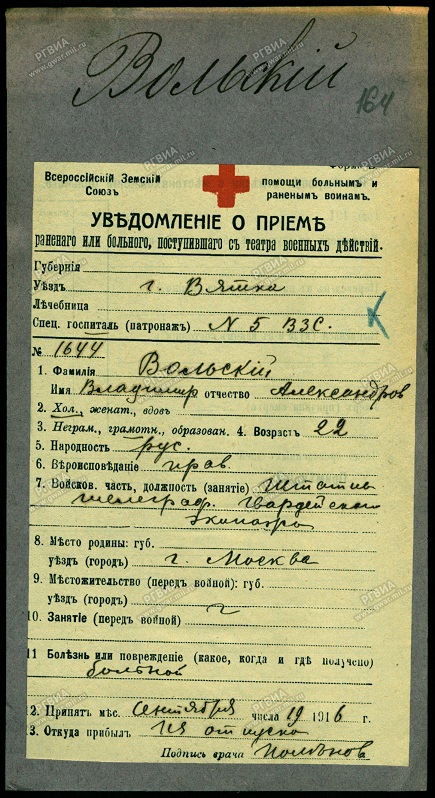 Вольскій
164
Всероссійскій Земскій Союзъ
помощи больнымъ и раненымъ воинамъ.
УВѢДОМЛЕНІЕ О ПРІЕМѢ
раненаго или больного, поступившаго съ театра военныхъ дѣйствій.
Губернія
Уѣздъ г. Вятка
Лѣчебница
Спец. госпиталь (патронажъ) N 5 ВЗС.
№ 1644
1. Фамилія Вольскій
Имя Владимир отчество Александров
2. Хол., женат., вдовъ
3. Неграм., грамотн., образован. 4. Возрастъ 22
5. Народность рус.
6. Вѣроисповѣданіе прав
7. Войсков. часть, должность (занятіе)
телеграф. Гвардейскаго
8. Мѣсто родины: губ.
уѣздъ (городъ) г. Москва
9. Мѣстожительство (передъ войной): губ.
уѣздъ (городъ)
10. Занятіе (передъ войной)
11 Болѣзнь или поврежденіе (какое, когда и гдѣ получено)
больной
2. Принятъ мѣс. Сентября числа 19 1916 г.
3. Откуда прибылъ из отпуска
Подпись врача
РГВИА
www.gwar.mil.ru